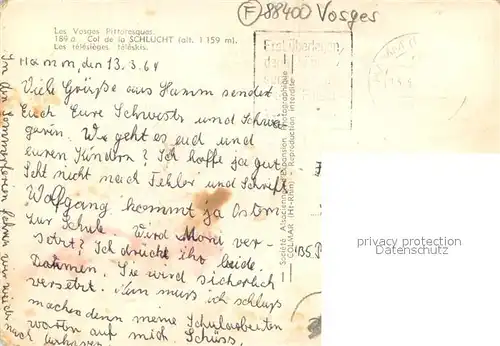 Les Vosges Pittoresques
189 a Col de la SCHLUCHT (alt. 1 159 m).
Les télésièges, téléskis.
F 88400 Vosges
Hamm, den 13.3.64
Viele Grüße aus Hamm sendet
Euch Eure Schwester und Schwä
gerin. Wie geht es euch und
euren Kindern? Ich hoffe ja gut.
Seht nicht nach Fehler und Schrift.
Wolfgang kommt ja Ostern
zur Schule. Wird Moni ver-
setzt? Ich drücke ihr beide
Daumen. Sie wird sicherlich
versetzt. Nun muss ich schluss
machen denn meine Schularbeiten
warten auf mich. Tschüss.
In den Sommerferien fahren wir
nach
Société Alsacienne d'Expansion Photographique
COLMAR (Ht-Rhin) Reproduction interdite
privacy protection
Datenschutz